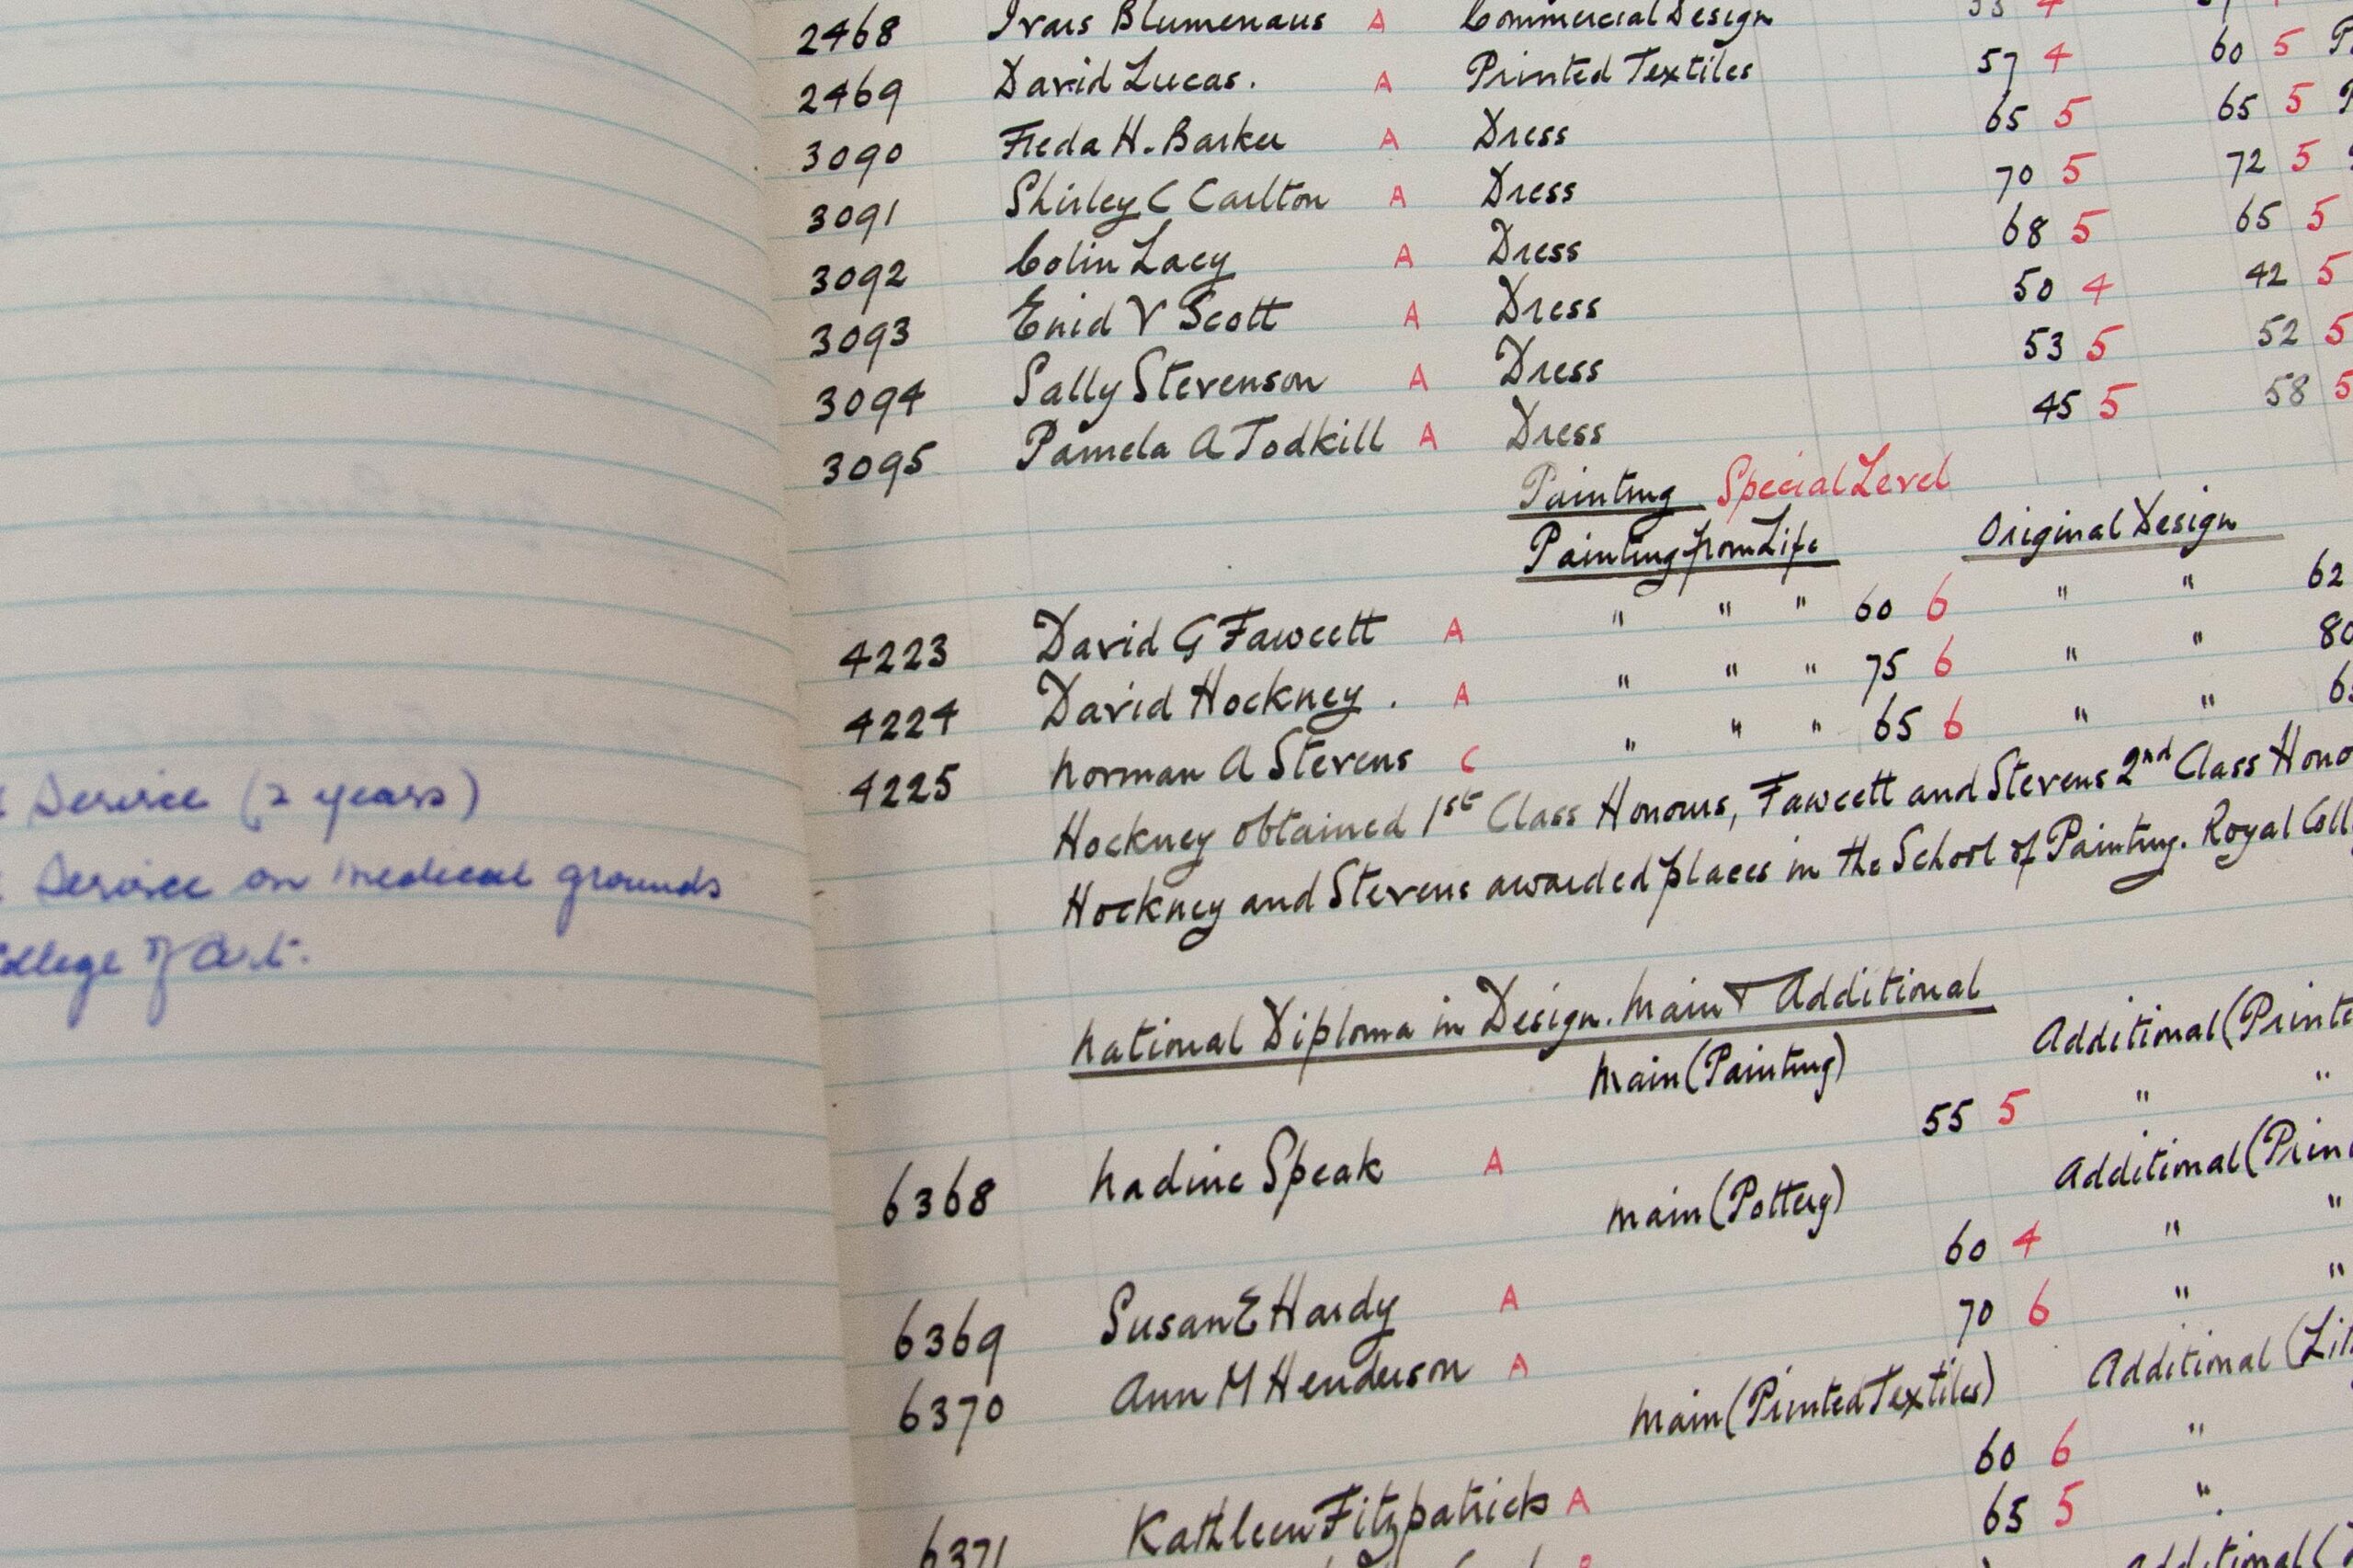 Service (2 years)
Service on medical grounds
College of Art.
2468 Ivars Blumenaus A Commercial Design 55 4
2469 David Lucas. A Printed Textiles 57 4 60 5
3090 Freda H. Barker A Dress 65 5 65 5
3091 Shirley C Carlton A Dress 70 5 72 5
3092 Colin Lacy A Dress 68 5 65 5
3093 Enid V Scott A Dress 50 4 42 5
3094 Sally Stevenson A Dress 53 5 52 5
3095 Pamela A Todkill A Dress 45 5 58 5
Painting Special Level
Painting from Life Original Design
4223 David G Fawcett A " " " 60 6 " " 62
4224 David Hockney. A " " " 75 6 " " 80
4225 Norman A Stevens C " " " 65 6 " "
Hockney obtained 1st Class Honours, Fawcett and Stevens 2nd Class Hono
Hockney and Stevens awarded places in the School of Painting. Royal Coll
National Diploma in Design. Main & Additional
Main (Painting) Additional (Printe
6368 Nadine Speak A 55 5 " "
Main (Pottery) Additional (Prin
6369 Susan E Hardy A 60 4 " "
6370 Ann M Henderson A 70 6 " "
Main (Printed Textiles) Additional (Lit
6371 Kathleen Fitzpatrick A 60 6 "
65 5 "
Additional (